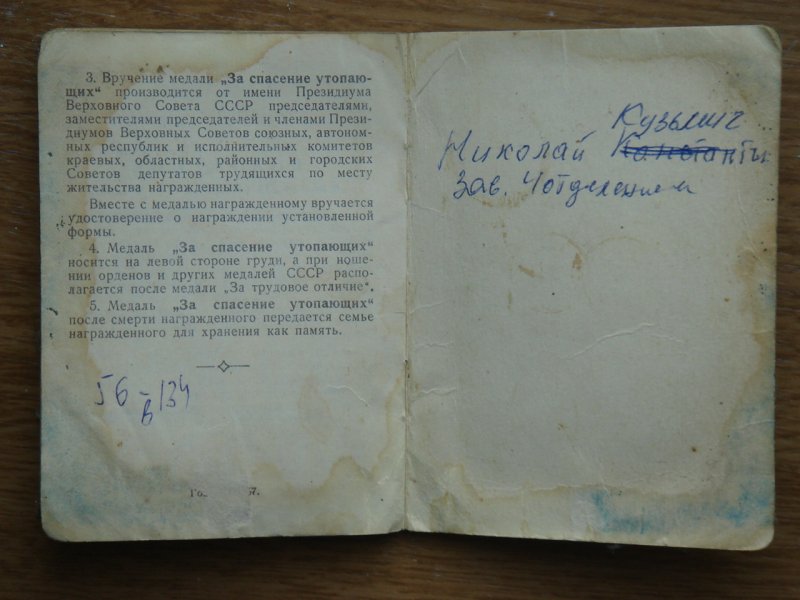 3. Вручение медали „За спасение утопаю-
щих“ производится от имени Президиума
Верховного Совета СССР председателями,
заместителями председателей и членами Прези-
диумов Верховных Советов союзных, автоном-
ных республик и исполнительных комитетов
краевых, областных, районных и городских
Советов депутатов трудящихся по месту
жительства награжденных.
Вместе с медалью награжденному вручается
удостоверение о награждении установленной
формы.
4. Медаль „За спасение утопающих“
носится на левой стороне груди, а при ноше-
нии орденов и других медалей СССР распо-
лагается после медали „За трудовое отличие“.
5. Медаль „За спасение утопающих“
после смерти награжденного передается семье
награжденного для хранения как память.
56-в/34
Кузьмич
Николай
Зав. 4 отделением